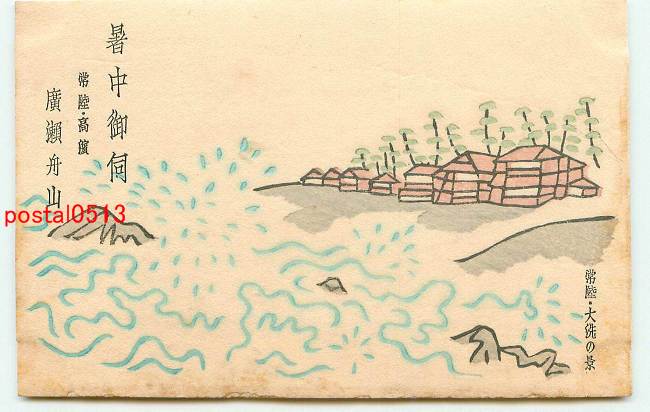 暑中御伺
常陸・高濵
廣瀬舟山
postal0513
常陸・大洗の景